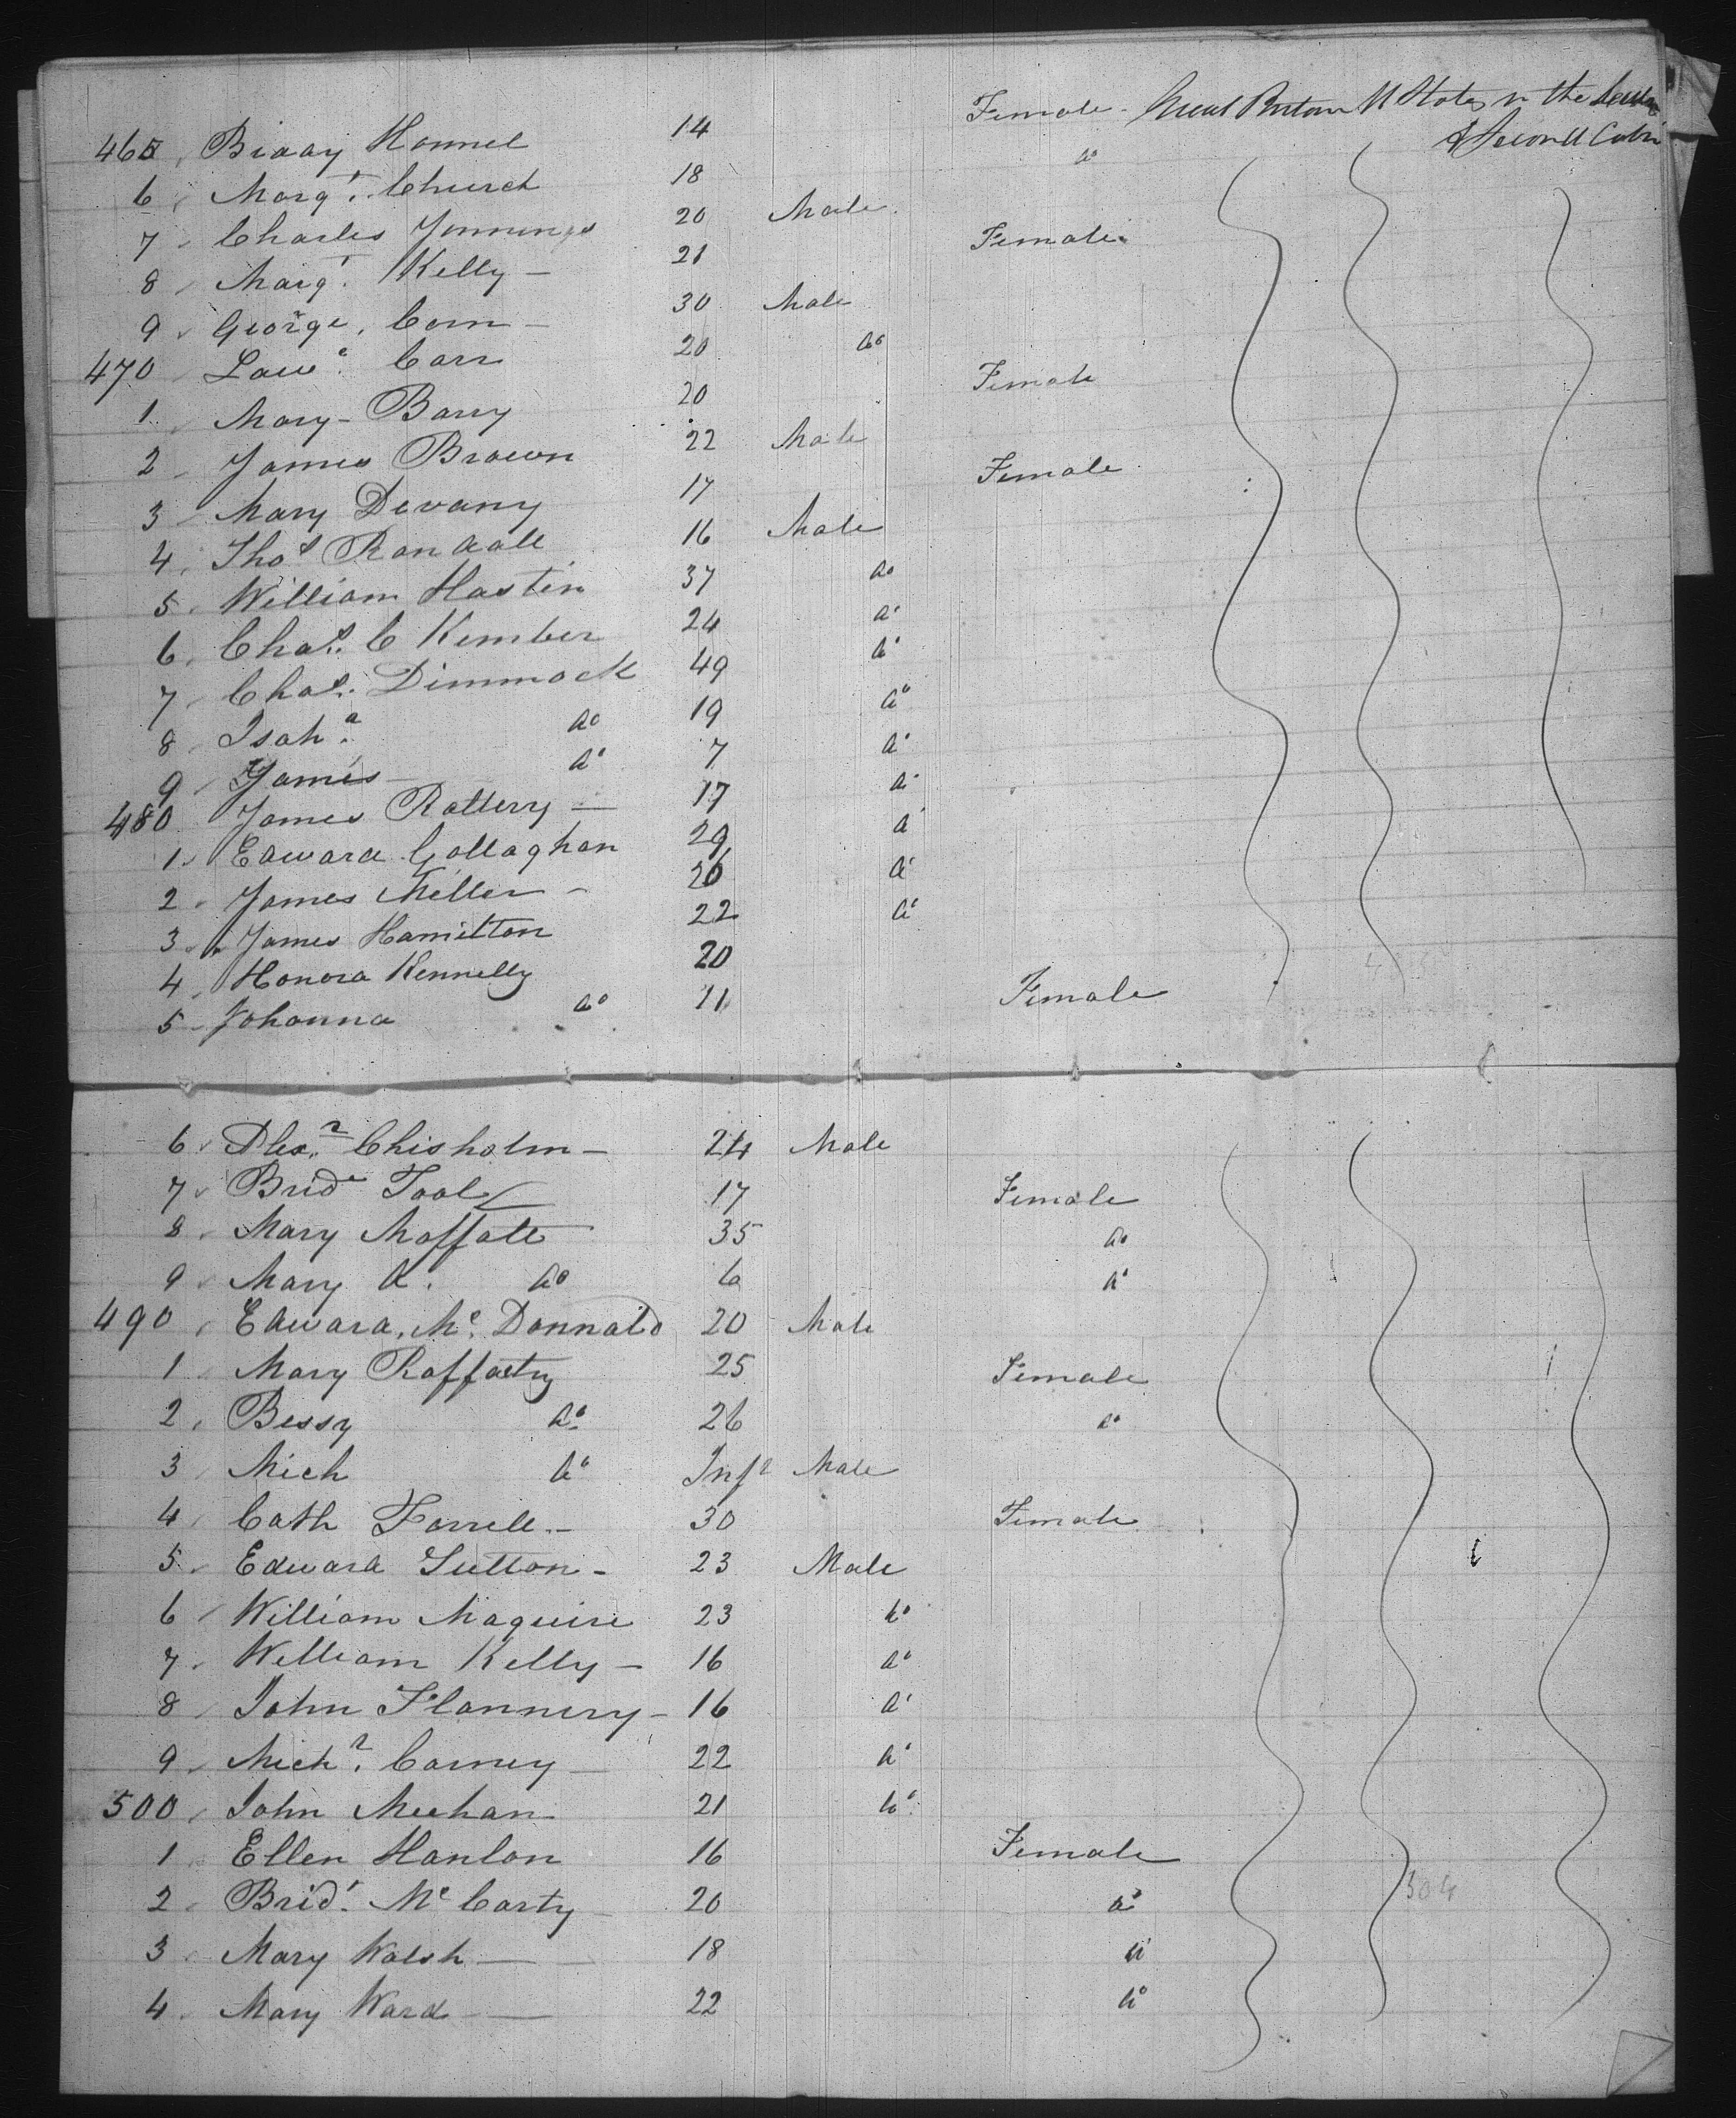 465 Biddy Honnel 14 Female Great Britain U States in the
& Second Cabin
6 Margt. Church 18 do
7 Charles Jennings 20 Male
8 Margt. Kelly 21 Female
9 George Corn 30 Male
470 Lawe. Carr 20 do
1 Mary Barry 20 Female
2 James Brown 22 Male
3 Mary Devany 17 Female
4 Thos Randall 16 Male
5 William Hastin 37 do
6 Chas. C Kember 24 do
7 Chas. Dimmock 49 do
8 Isaha. do 19 do
9 James do 7 do
480 James Rattery 17 do
1 Edward Gallaghan 29 do
2 James Miller 26 do
3 James Hamilton 22 do
4 Honora Kennelly 20
5 Johanna do 11 Female
6 Alexr. Chisholm 24 Male
7 Bride Tool 17 Female
8 Mary Moffatt 35 do
9 Mary A. do 6 do
490 Edward Mc. Donnald 20 Male
1 Mary Raffarty 25 Female
2 Bessy do 26 do
3 Mich do Inft Male
4 Cath Farrell 30 Female
5 Edward Sutton 23 Male
6 William Maguire 23 do
7 William Kelly 16 do
8 John Flannery 16 do
9 Michl. Carney 22 do
500 John Meehan 21 do
1 Ellen Hanlon 16 Female
2 Bridt. Mc Carty 20 do
304
3 Mary Walsh 18 do
4 Mary Ward 22 do